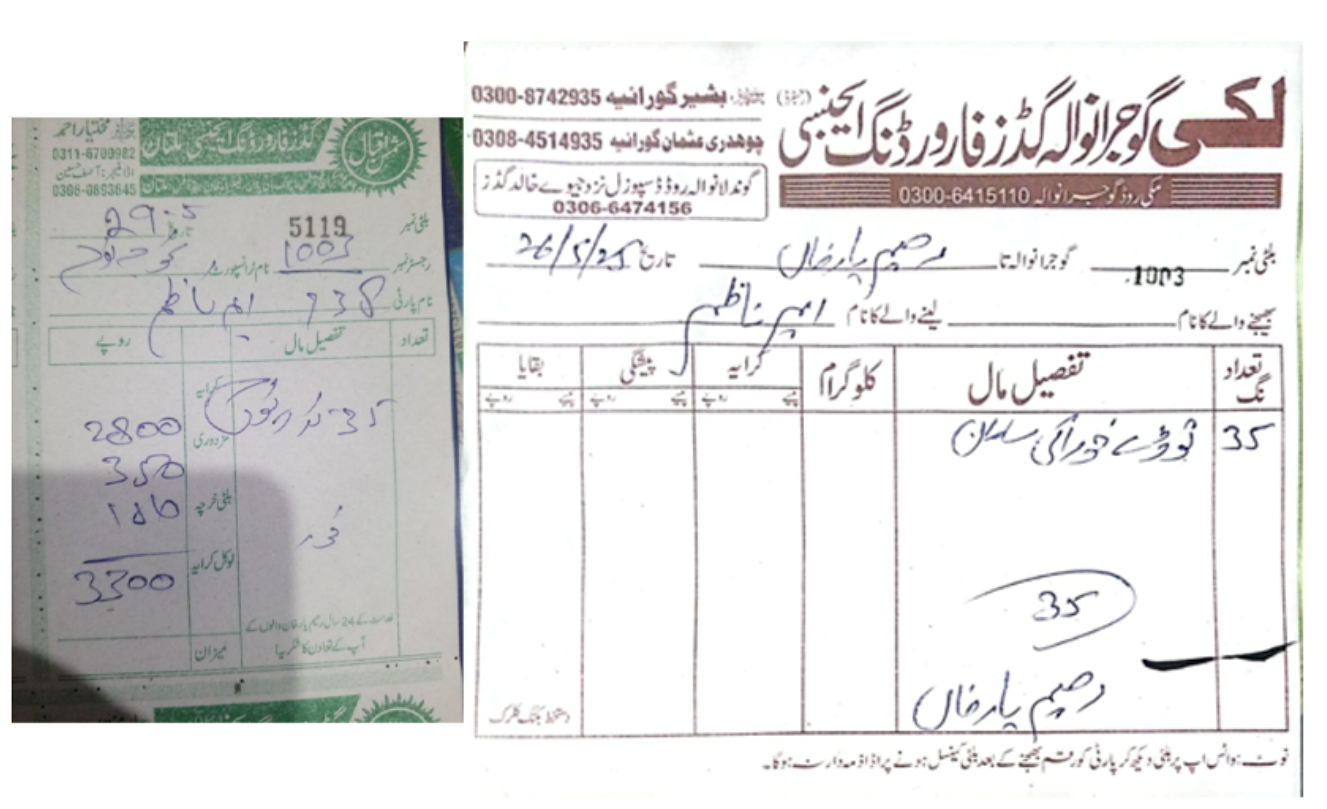 مختیار احمد
گڈز فارورڈنگ ایجنسی ملتان
شمس اقبال
0311-6700982
0306-8693645
بلٹی نمبر 5119 تاریخ 29-5
رجسٹر نمبر 1003 نام ٹرانسپورٹ
نام پارٹی 938 ایم ناظم
تعداد تفصیل مال روپے
35
کرایہ 2800
مزدوری 350
بلٹی خرچہ
لوکل کرایہ 3300
خدمت کے 24 سال رحیم یار خان والوں کے
آپ کے تعاون کا شکریہ!
میزان
لکی گوجرانوالہ گڈز فارورڈنگ ایجنسی (رجسٹرڈ)
بشیر گورائیہ 0300-8742935
چوھدری عثمان گورائیہ 0308-4514935
گوندلانوالہ روڈ ڈسپوزل نزد جیوے خالد گڈز
0306-6474156
مکی روڈ گوجرانوالہ 0300-6415110
بلٹی نمبر 1003 گوجرانوالہ تا رحیم یارخاں تاریخ 26/5/25
بھیجنے والے کا نام لینے والے کا نام ایم ناظم
تعداد نگ تفصیل مال کلوگرام کرایہ پیشگی بقایا
پیسے روپے پیسے روپے پیسے روپے
35 توڑے خوراکی سامان
35
رحیم یارخاں
دستخط بکنگ کلرک
نوٹ: وائس اپ پر بلٹی دیکھ کر پارٹی کو رقم بھیجنے کے بعد بلٹی کینسل ہونے پر اڈا ذمہ دار نہ ہوگا۔